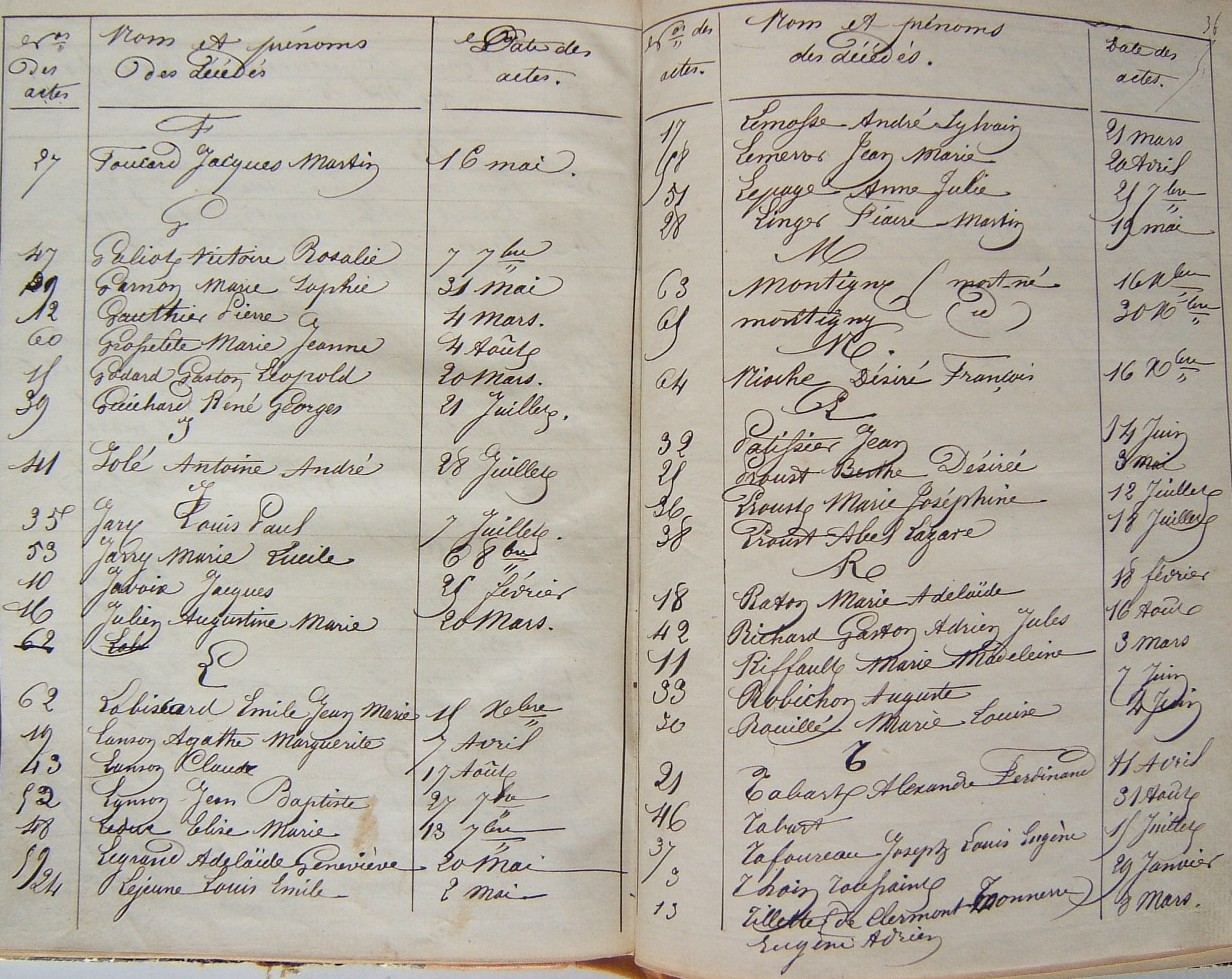 Nos des actes Noms et prénoms des décédés Date des actes.
F
27 Foucard Jacques Martin 16 mai.
G
47 Galiote Victoire Rosalie 7 7bre
29 Garnon Marie Sophie 31 Mai
12 Gauthier Pierre 4 Mars.
60 Grossetete Marie Jeanne 4 Août
15 Godard Gaston Léopold 20 Mars.
39 Guichard René Georges 21 Juillet.
I
41 Iolé Antoine André 28 Juillet
J
35 Jary Louis Paul 7 Juillet.
53 Jarry Marie Lucile 6 8bre
10 Javoix Jacques 25 février
16 Julien Augustine Marie 20 Mars.
62 Lab
L
62 Labissard Emile Jean Marie 15 Xbre
19 Lanson Agathe Marguerite 7 Avril
43 Lanson Claude 17 Août
52 Lanson Jean Baptiste 27 7bre
48 Leduc Elise Marie 13 7bre
Legrand Adelaïde Geneviève 20 Mai
24 Lejeune Louis Emile 2 Mai
36
Nos des actes. Noms et prénoms des décédés. Date des actes.
17 Lemosse André Sylvain 21 mars
Jean Marie 20 Avril
51 Lepage Anne Julie 21 7bre
28 Linger Pierre Martin 19 mai
M
63 Montigny (mort né 16 Xbre
65 montigny (id) 30 Xbre
N.
64 Nioche Désiré François 16 Xbre
P
32 Patissier Jean 14 Juin
25 Proust Berthe Désirée 3 mai
36 Proust Marie Joséphine 12 Juillet
38 Proust Abel Lazare 18 Juillet
R
18 Raton Marie Adélaïde 18 février
42 Richard Gaston Adrien Jules 16 Août
11 Riffault Marie Madeleine 3 mars
33 Robichon Auguste 7 Juin
30 Rouillé Marie Louise 4 Juin
T
21 Tabart Alexandre Ferdinand 11 Avril
46 Tabart 31 Août
37 Tafoureau Joseph Louis Eugène 15 Juillet
3 Thoin Toussaint 29 Janvier
13 Tillette (de Clermont Tonnerre) 8 Mars.
Eugène Adrien